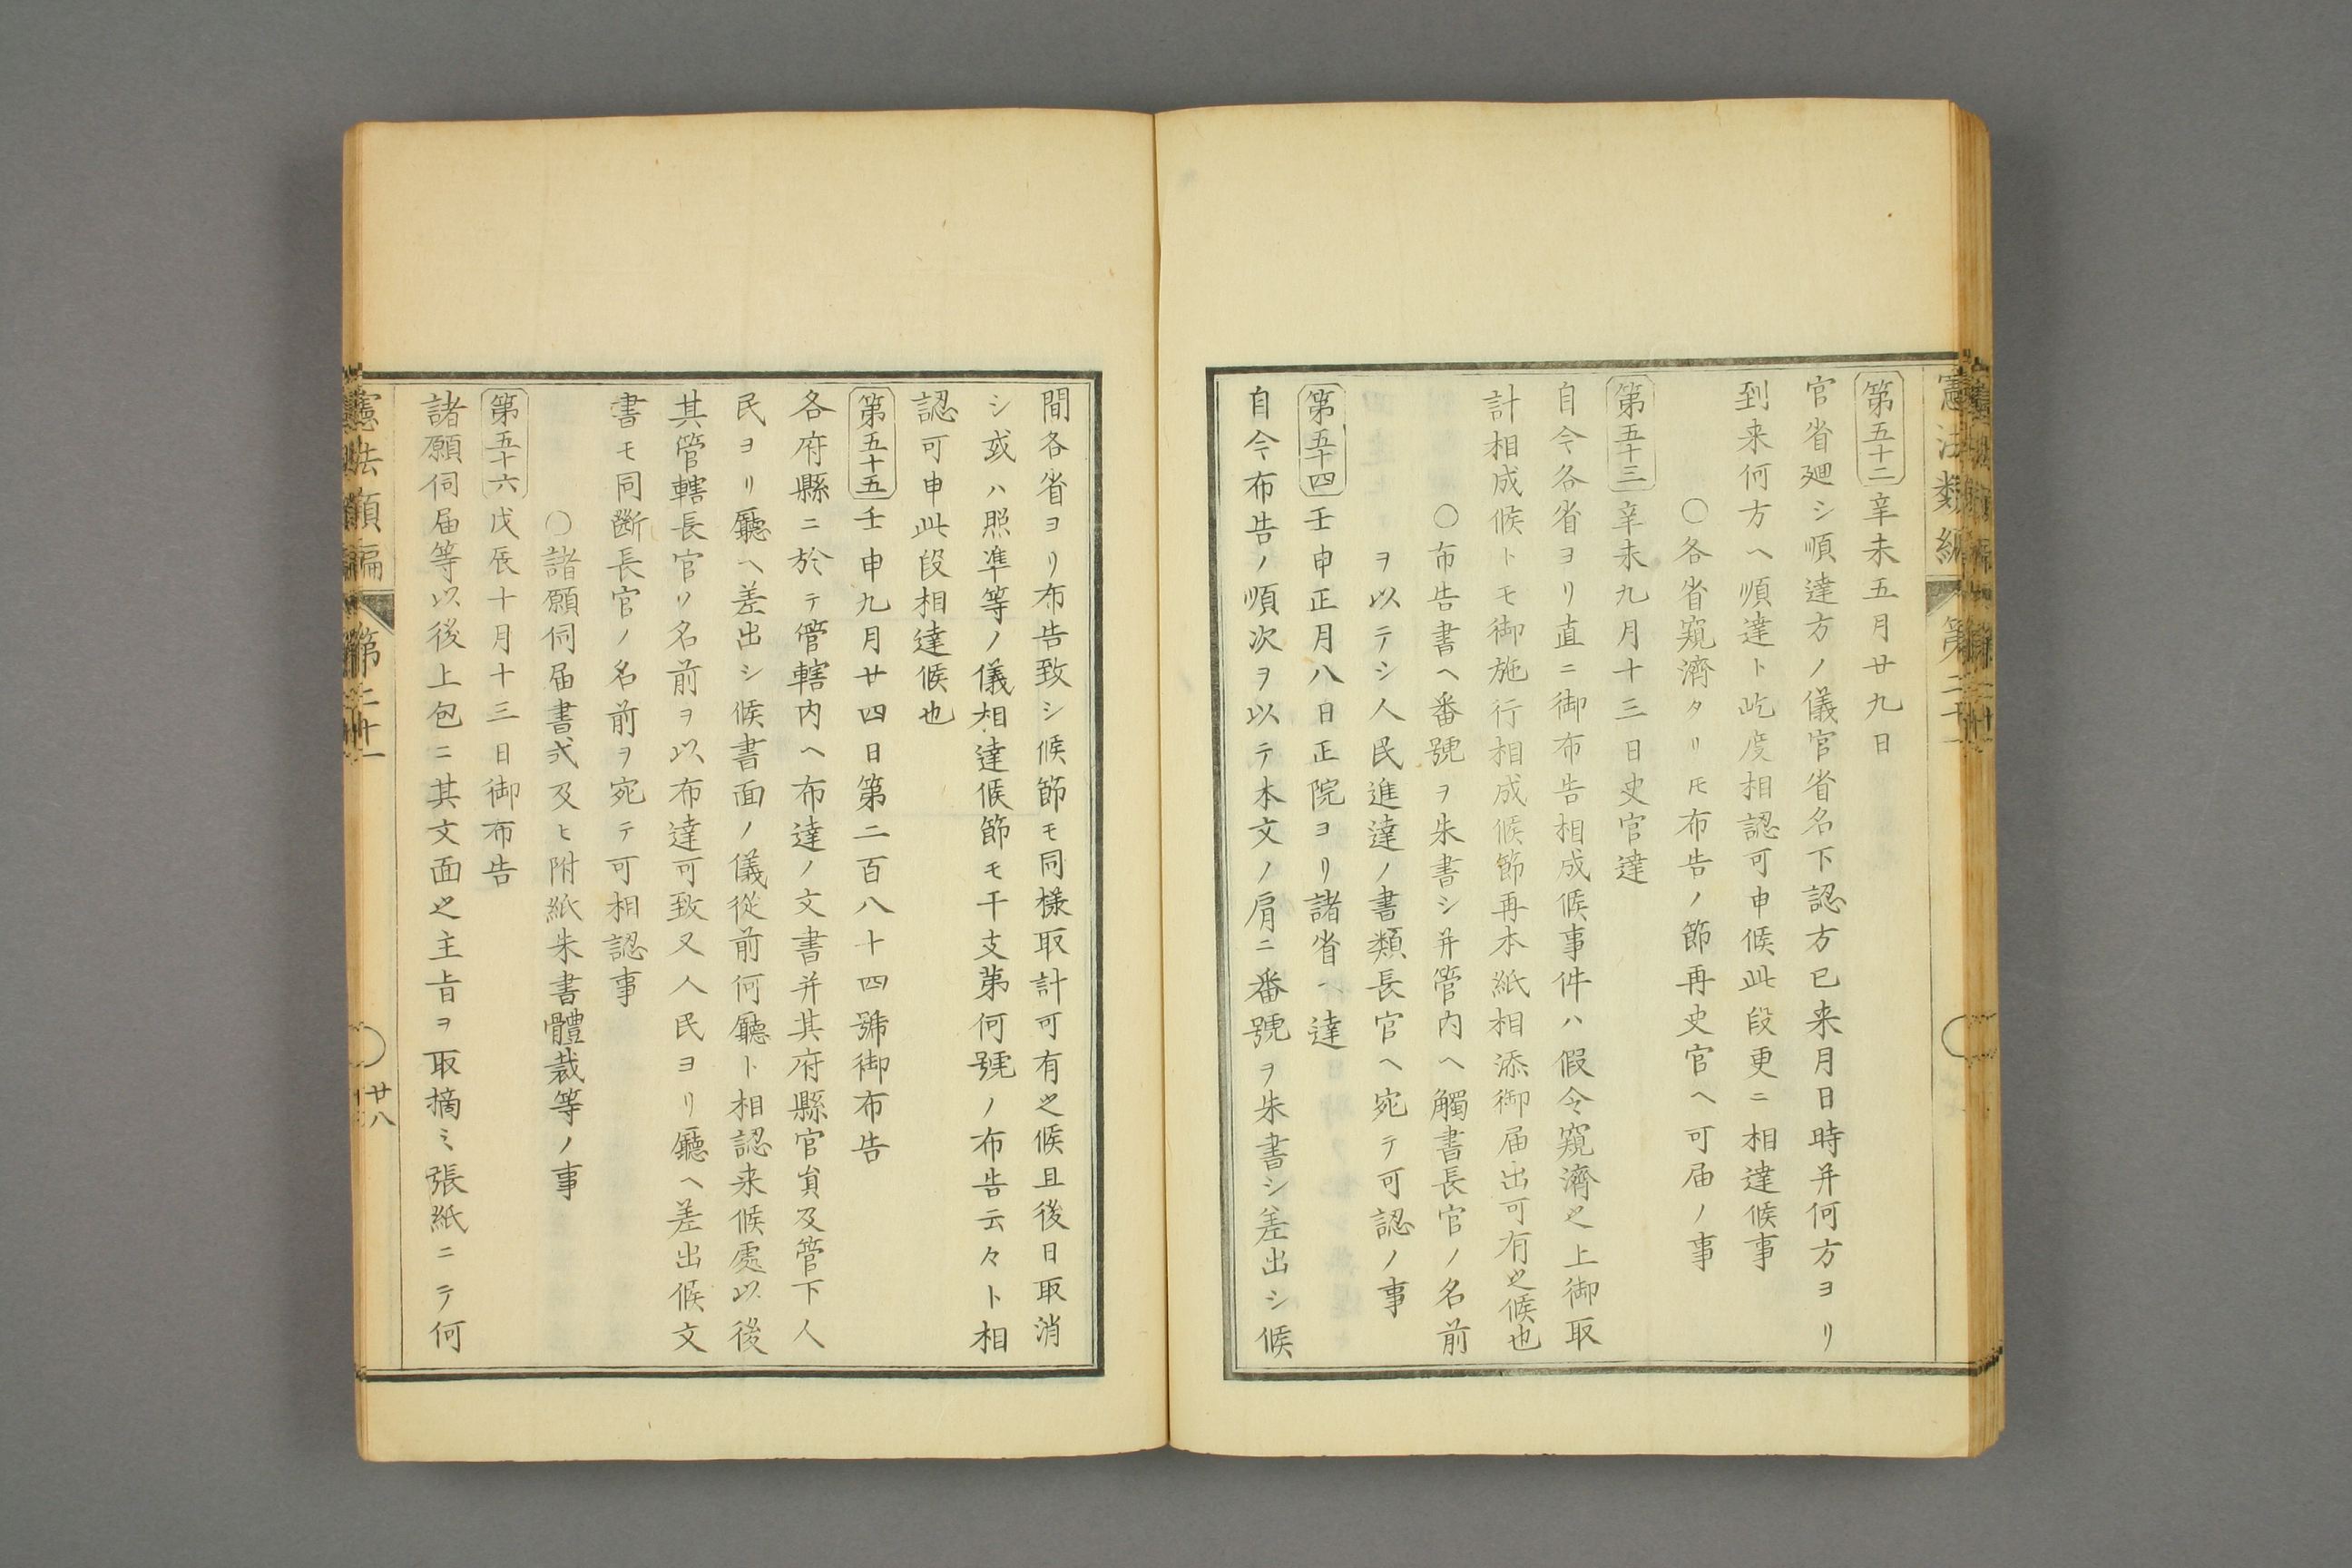 憲法類編 第二十一
第五十二 辛未五月廿九日
官省廻シ順達方ノ儀官省名下認方已来月日時并何方ヨリ
到来何方ヘ順達ト屹度相認可申候此段更ニ相達候事
〇各省窺濟タリ𪜈布告ノ節再史官ヘ可届ノ事
第五十三 辛未九月十三日史官達
自今各省ヨリ直ニ御布告相成候事件ハ假令窺濟之上御取
計相成候トモ御施行相成候節再本紙相添御届出可有之候也
〇布告書ヘ番號ヲ朱書シ并管内ヘ觸書長官ノ名前
ヲ以テシ人民進達ノ書類長官ヘ宛テ可認ノ事
第五十四 壬申正月八日正院ヨリ諸省ヘ達
自今布告ノ順次ヲ以テ本文ノ肩ニ番號ヲ朱書シ差出シ候
間各省ヨリ布告致シ候節モ同様取計可有之候且後日取消
シ或ハ照準等ノ儀相達候節モ干支第何號ノ布告云々ト相
認可申此段相達候也
第五十五 壬申九月廿四日第二百八十四號御布告
各府縣ニ於テ管轄内ヘ布達ノ文書并其府縣官員及管下人
民ヨリ廳ヘ差出シ候書面ノ儀從前何廳ト相認来候處以後
其管轄長官ノ名前ヲ以布達可致又人民ヨリ廳ヘ差出候文
書モ同斷長官ノ名前ヲ宛テ可相認事
〇諸願伺届書式及ヒ附紙朱書體裁等ノ事
第五十六 戊辰十月十三日御布告
諸願伺届等以後上包ニ其文面之主旨ヲ取摘ミ張紙ニテ何
憲法類編 第二十一 廿八